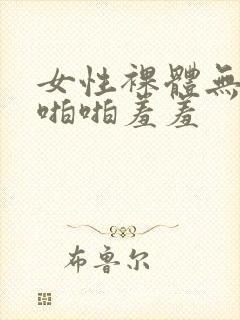 女性裸體無
啪啪羞羞
布鲁尔